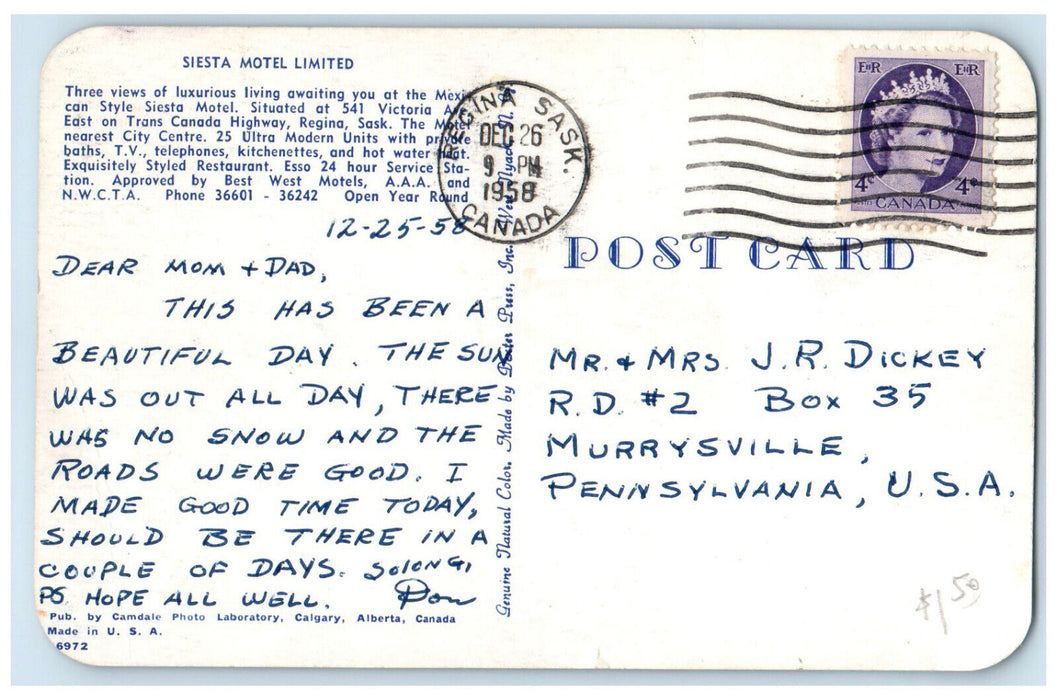 SIESTA MOTEL LIMITED
Three views of luxurious living awaiting you at the Mexi-
can Style Siesta Motel. Situated at 541 Victoria Ave.
East on Trans Canada Highway, Regina, Sask. The Motel
nearest City Centre. 25 Ultra Modern Units with private
baths, T.V., telephones, kitchenettes, and hot water heat.
Exquisitely Styled Restaurant. Esso 24 hour Service Sta-
tion. Approved by Best West Motels, A.A.A. and
N.W.C.T.A. Phone 36601 - 36242 Open Year Round
12-25-58
DEAR MOM + DAD,
THIS HAS BEEN A
BEAUTIFUL DAY. THE SUN
WAS OUT ALL DAY, THERE
WAS NO SNOW AND THE
ROADS WERE GOOD. I
MADE GOOD TIME TODAY,
SHOULD BE THERE IN A
COUPLE OF DAYS. SO LONG,
PS. HOPE ALL WELL. Don
Pub. by Camdale Photo Laboratory, Calgary, Alberta, Canada
Made in U. S. A.
6972
Genuine Natural Color, Made by Dexter Press, Inc. West Nyack, N.
REGINA SASK.
DEC 26
9 PM
1958
CANADA
EIIR EIIR
4c 4c
CANADA
POST CARD
MR. & MRS J.R. DICKEY
R.D. #2 BOX 35
MURRYSVILLE,
PENNSYLVANIA, U.S.A.
$1.50